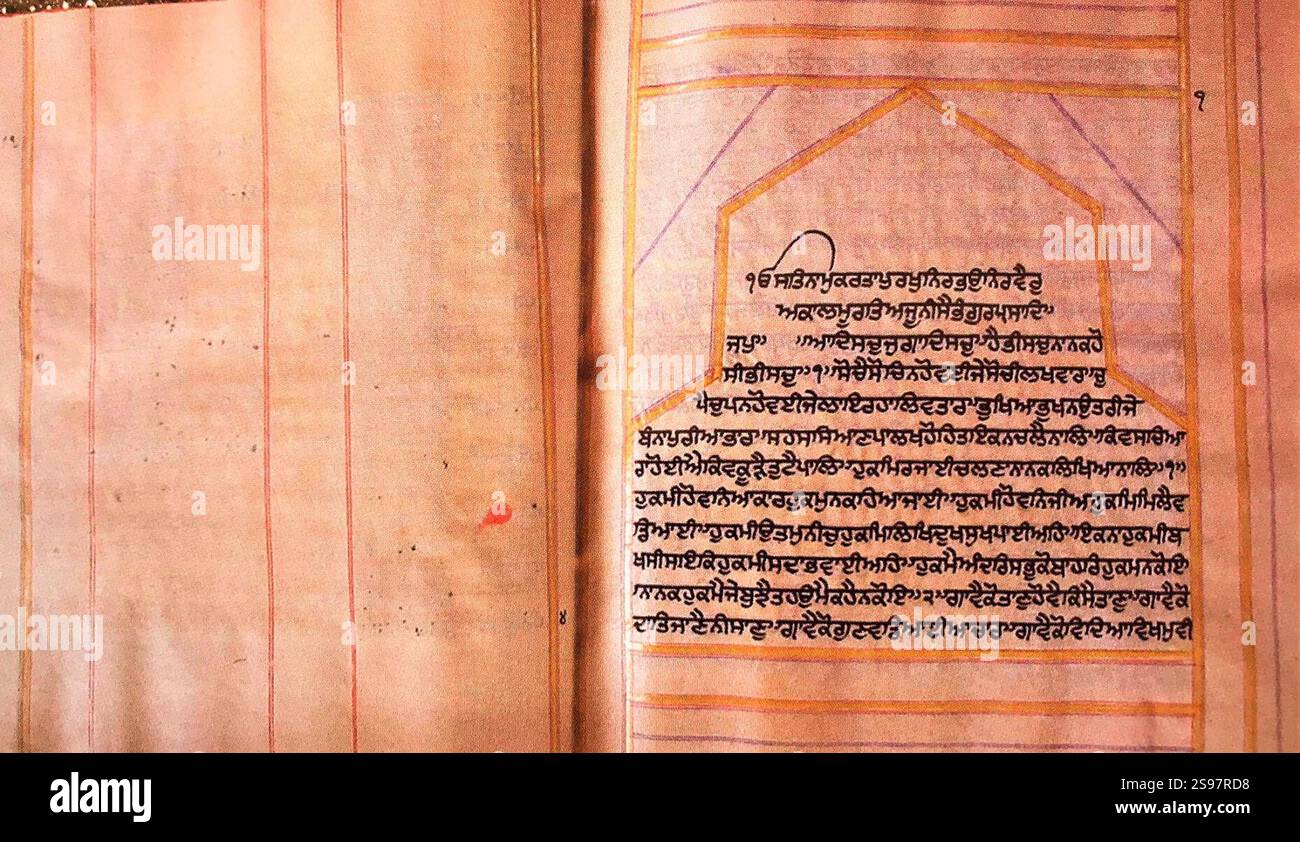 ੧
ੴਸਤਿਨਾਮੁਕਰਤਾਪੁਰਖੁਨਿਰਭਉਨਿਰਵੈਰੁ
ਅਕਾਲਮੂਰਤਿਅਜੂਨੀਸੈਭੰਗੁਰਪ੍ਰਸਾਦਿ॥
ਜਪੁ॥ ॥ਆਦਿਸਚੁਜੁਗਾਦਿਸਚੁ॥ਹੈਭੀਸਚੁਨਾਨਕਹੋ
ਸੀਭੀਸਚੁ॥੧॥ਸੋਚੈਸੋਚਿਨਹੋਵਈਜੇਸੋਚੀਲਖਵਾਰ॥ਚੁ
ਪੈਚੁਪਨਹੋਵਈਜੇਲਾਇਰਹਾਲਿਵਤਾਰ॥ਭੁਖਿਆਭੁਖਨਉਤਰੀਜੇ
ਬੰਨਾਪੁਰੀਆਭਾਰ॥ਸਹਸਸਿਆਣਪਾਲਖਹੋਹਿਤਾਇਕਨਚਲੈਨਾਲਿ॥ਕਿਵਸਚਿਆ
ਰਾਹੋਈਐਕਿਵਕੂੜੈਤੁਟੈਪਾਲਿ॥ਹੁਕਮਿਰਜਾਈਚਲਣਾਨਾਨਕਲਿਖਿਆਨਾਲਿ॥੧॥
ਹੁਕਮੀਹੋਵਨਿਆਕਾਰਹੁਕਮੁਨਕਹਿਆਜਾਈ॥ਹੁਕਮੀਹੋਵਨਿਜੀਅਹੁਕਮਿਮਿਲੈਵ
ਡਿਆਈ॥ਹੁਕਮੀਉਤਮੁਨੀਚੁਹੁਕਮਿਲਿਖਿਦੁਖਸੁਖਪਾਈਅਹਿ॥ਇਕਨਾਹੁਕਮੀਬ
ਖਸੀਸਇਕਿਹੁਕਮੀਸਦਾਭਵਾਈਅਹਿ॥ਹੁਕਮੈਅੰਦਰਿਸਭੁਕੋਬਾਹਰਿਹੁਕਮਨਕੋਇ
॥ਨਾਨਕਹੁਕਮੈਜੇਬੁਝੈਤਹਉਮੈਕਹੈਨਕੋਇ॥੨॥ਗਾਵੈਕੋਤਾਣੁਹੋਵੈਕਿਸੈਤਾਣੁ॥ਗਾਵੈਕੋ
ਦਾਤਿਜਾਣੈਨੀਸਾਣੁ॥ਗਾਵੈਕੋਗੁਣਵਡਿਆਈਆਚਾਰ॥ਗਾਵੈਕੋਵਿਦਿਆਵਿਖਮੁਵੀ
alamy
Image ID: 2S97RD8
www.alamy.com